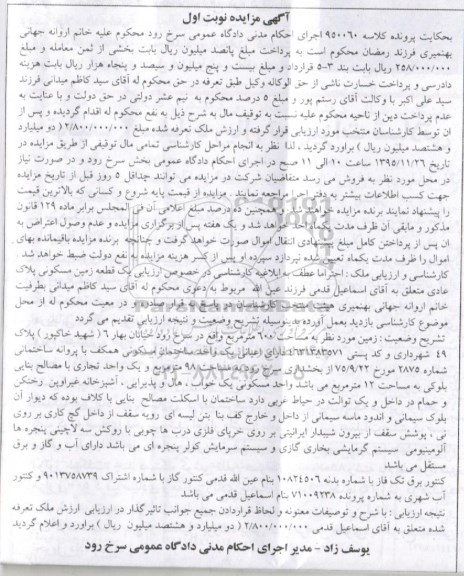 آگهی مزایده نوبت اول
بحکایت پرونده کلاسه ۹۵۰۰۶۰ اجرای احکام مدنی دادگاه عمومی سرخ رود محکوم علیه خانم اروانه جهانی
بهنمیری فرزند رمضان محکوم است به پرداخت مبلغ پانصد میلیون ریال بابت بخشی از ثمن معامله و مبلغ
۲۵۸/۰۰۰/۰۰۰ ریال بابت بند ۳-۵ قرارداد و مبلغ بیست و پنج میلیون و سیصد و پنجاه هزار ریال بابت هزینه
دادرسی و پرداخت خسارت ناشی از حق الوکاله وکیل طبق تعرفه در حق محکوم له آقای سید کاظم میدانی فرزند
سید علی اکبر با وکالت آقای رستم پور و مبلغ ۵ درصد محکوم به نیم عشر دولتی در حق دولت و با عنایت به
عدم پرداخت دین از ناحیه محکوم علیه نسبت به توقیف مال به شرح ذیل به نفع محکوم له اقدام گردیده و پس از
ان توسط کارشناسان منتخب مورد ارزیابی قرار گرفته و ارزش ملک تعرفه شده مبلغ ۲/۸۰۰/۰۰۰/۰۰۰ (دو میلیارد
و هشتصد میلیون ریال ) براورد گردید . لذا نظر به انجام مراحل کارشناسی تمامی مال توقیفی از طریق مزایده در
تاریخ ۱۳۹۵/۱۱/۲۶ ساعت ۱۰ الی ۱۱ صبح در اجرای احکام دادگاه عمومی بخش سرخ رود و در صورت نیاز
در محل مورد نظر به فروش می رسد متقاضیان شرکت در مزایده می توانند حداقل ۵ روز قبل از تاریخ مزایده
جهت کسب اطلاعات بیشتر به دفتر اجرا مراجعه نمایند . مزایده از قیمت پایه شروع و کسانی که بالاترین قیمت
را پیشنهاد نمایند برنده مزایده خواهند شد . و همچنین ده درصد مبلغ اعلامی آن فی المجلس برابر ماده ۱۲۹ قانون
مذکور و مابقی آن ظرف مدت یک ماه اخذ خواهد شد و یک هفته پس از برگزاری مزایده و عدم وصول اعتراض به
ان پس از پرداختن کامل مبلغ پیشنهادی انتقال اموال صورت خواهد گرفت و چنانچه برنده مزایده باقیمانده بهای
اموال را ظرف مدت یکماه تعیین شده نپردازد سپرده او پس از کسر هزینه مزایده به نفع دولت ضبط خواهد شد .
کارشناسی و ارزیابی ملک : احتراما عطف به ابلاغیه کارشناسی در خصوص ارزیابی یک قطعه زمین مسکونی پلاک
عادی متعلق به آقای اسماعیل قدمی فرزند عین الله مربوط به دعوی محکوم له آقای سید کاظم میدانی بطرفیت
خانم اروانه جهانی بهنمیری هیئت کارشناسان در پاسخ به قرار صادره در معیت محکوم له از محل
موضوع کارشناسی بازدید بعمل آورده بدینوسیله تشریح وضعیت و نتیجه ارزیابی تقدیم می گردد
تشریح وضعیت : زمین مورد نظر به مساحت ۶۰۰ مترمربع واقع در سرخ رود خیابان بهار ۶ ( شهید خاکپور ) پلاک
۴۹ شهرداری و کد پستی دارای اعیانی یک واحد ساختمان مسکونی همکف با پروانه ساختمانی
شماره ۲۸۷۵ مورخ ۷۵/۹/۲۲ از بخشداری سرخ رود به مساحت ۹۸ مترمربع و یک واحد تجاری با مصالح بنایی
بلوکی به مساحت ۱۲ مترمربع می باشد واحد مسکونی یک خواب ، هال و پذیرایی ، آشپزخانه غیراوپن رختکن
و حمام در داخل و یک توالت در حیاط غربی دارد ساختمان با اسکلت مصالح بنایی با کلاف بوده که دیوار آن
بلوک سیمانی و اندود ماسه سیمانی از داخل و خارج کف بنا بتن لیسه ای رویه سقف از داخل گچ کاری بر روی
نی ، پوشش سقف از بیرون شیبدار ایرانیتی بر روی خرپای فلزی درب ها چوبی با روکش سه لاچینی پنجره ها
آلومینیومی سیستم گرمایشی بخاری گازی و سیستم سرمایش کولر پنجره ای می باشد دارای آب و گاز و برق
مستقل می باشد
کنتور برق تک فاز با شماره بدنه ۱۰۸۲۴۵۰۶ بنام عین الله قدمی کنتور گاز با شماره اشتراک ۹۰۱۳۷۵۸۷۳۹ و کنتور
آب شهری به شماره پرونده ۷۱۰۰۹۲۳۸ بنام اسماعیل قدمی می باشد
نتیجه ارزیابی : با شرح و توصیفات معنونه و لحاظ قراردادن جمیع جوانب تاثیرگذار در ارزیابی ارزش ملک تعرفه
شده متعلق به آقای اسماعیل قدمی ۲/۸۰۰/۰۰۰/۰۰۰ ( دو میلیارد و هشتصد میلیون ریال ) براورد و اعلام گردید
یوسف زاد - مدیر اجرای احکام مدنی دادگاه عمومی سرخ رود